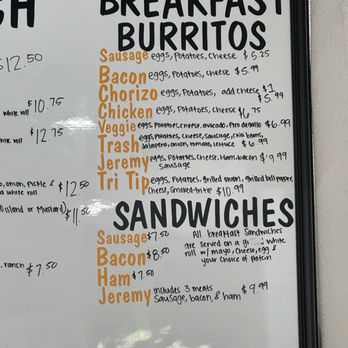 H
$12.50
$10.75
white roll
$12.75
white roll
, onion, Pickle &
a white roll
$12.50
Island or Mustard)
$11.50
, ranch $7.50
BREAKFAST
BURRITOS
Sausage eggs, Potatoes, cheese $5.25
Bacon eggs, Potatoes, cheese $5.99
Chorizo eggs, Potatoes, add cheese $1
$5.99
Chicken eggs, Potatoes, cheese $6.75
Veggie eggs, Potatoes, cheese, avocado, Pico de gallo $6.99
Trash eggs, Potatoes, cheese, sausage, chili beans,
jalapeno, onion, tomato, lettuce $6.99
Jeremy eggs, Potatoes, cheese, Ham, bacon $9.99
sausage
Tri Tip eggs, Potatoes, grilled onion, grilled bell pepper,
cheese, smoked tri tip $10.99
SANDWICHES
Sausage $7.50
Bacon $8.50
Ham $7.50
Jeremy includes 3 meats
sausage, bacon, & ham $9.99
All breakfast Sandwiches
are served on a white
roll w/ mayo, cheese, egg &
your choice of